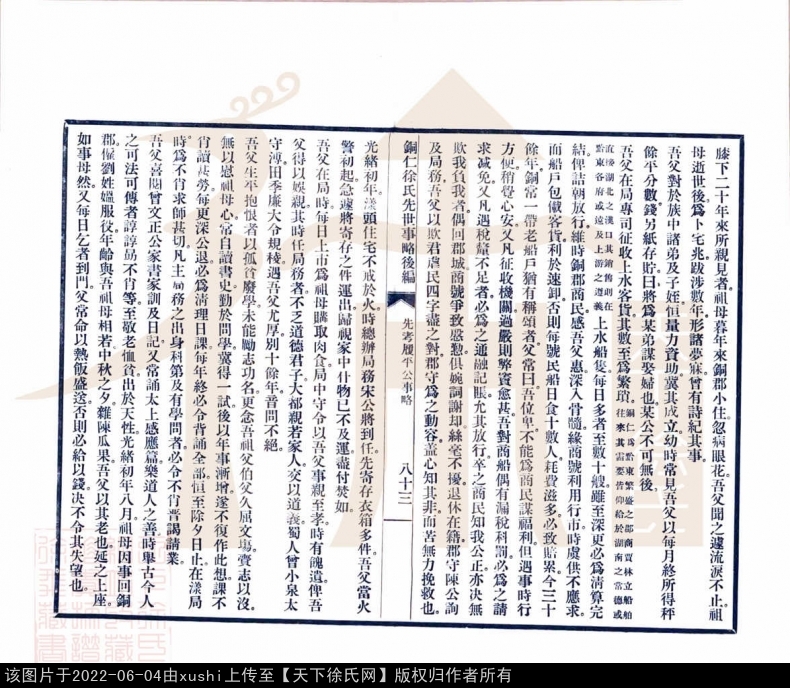 膝下二十年來所親見者祖母暮年來銅郡小住忽病眼花吾父聞之遽流淚不止祖
母逝世後爲卜宅兆跋涉數年形諸夢寐曾有詩紀其事
吾父對於族中諸弟及子姪恒量力資助冀其成立幼時常見吾父以每月終所得秤
餘平分數錢另紙存貯曰將爲某弟謀娶婦也某公不可無後
吾父在局專司征收上水客貨其數至爲繁瑣銅仁爲黔東繁盛之郡商賈林立船舶往來其需要皆仰給於湖南之常德或
直接湖北之漢口其銷售則在黔東各府或遠及上游之遵義上水船隻每日多者至數十艘雖至深更必爲清算完
結俾詰朝放行維時銅郡商民感吾父惠深入骨髓緣商號利用行市時虞供不應求
而船戶包儎客貨利於速卸否則每號民船日食十數人耗費滋多必致賠累今三十
餘年銅常一帶老船戶猶有稱頌者父常曰吾位卑不能爲商民謀福利但遇事時行
方便稍覺心安又凡征收機關過嚴則弊竇愈甚吾對商船偶有漏稅科罰必爲之請
求减免又凡遇稅釐不足者必爲之通融記賬允其放行卒之商民知我公正亦決無
欺我負我者偶回郡城商號爭致感懃俱婉詞謝却絲毫不擾退休在籍郡守陳公詢
及局務吾父以欺君虐民四字盡之對郡守爲之動容蓋心知其非而苦無力挽救也
銅仁徐氏先世事略後編 先考履平公事略 八十三
光緒初年漾頭住宅不戒於火時總辦局務宋公將到任先寄存衣箱多件吾父當火
警初起急遽將寄存之件運出歸視家中什物已不及運盡付焚如
吾父在局時每日上市爲祖母購取肉食局中守令以吾父事親至孝時有醜遺俾吾
父得以娛親其時任局務者不乏道德君子大都親若家人交以道義蜀人曾小泉太
守溥田季廉大令規稜遇吾父尤厚別十餘年音問不絕
吾父生平抱恨者以孤貧廢學未能勵志功名更念吾祖父伯父久屈文場賫志以沒
無以慰祖母心常自讀書史勤於問學冀得一試後以年事漸增遂不復作此想課不
肖讀甚勞每更深公退必爲清理日課每年終必令背誦全部恒至除夕日止在漾局
時爲不肖求師甚切凡主局務之出身科第及有學問者必令不肖晋謁請業
吾父喜閱曾文正公家書家訓及日記又常誦太上感應篇樂道人之善時舉古今人
之可法可傳者諄諄勗不肖等至敬老恤貧出於天性光緒初年八月祖母因事回銅
郡僱劉姓媼服役年齡與吾祖母相若中秋之夕雜陳瓜果吾父以其老也延之上座
如事母然又每日乞者到門父常命以熱飯盛送否則必給以錢决不令其失望也
该图片于2022-06-04由xushi上传至【天下徐氏网】版权归作者所有